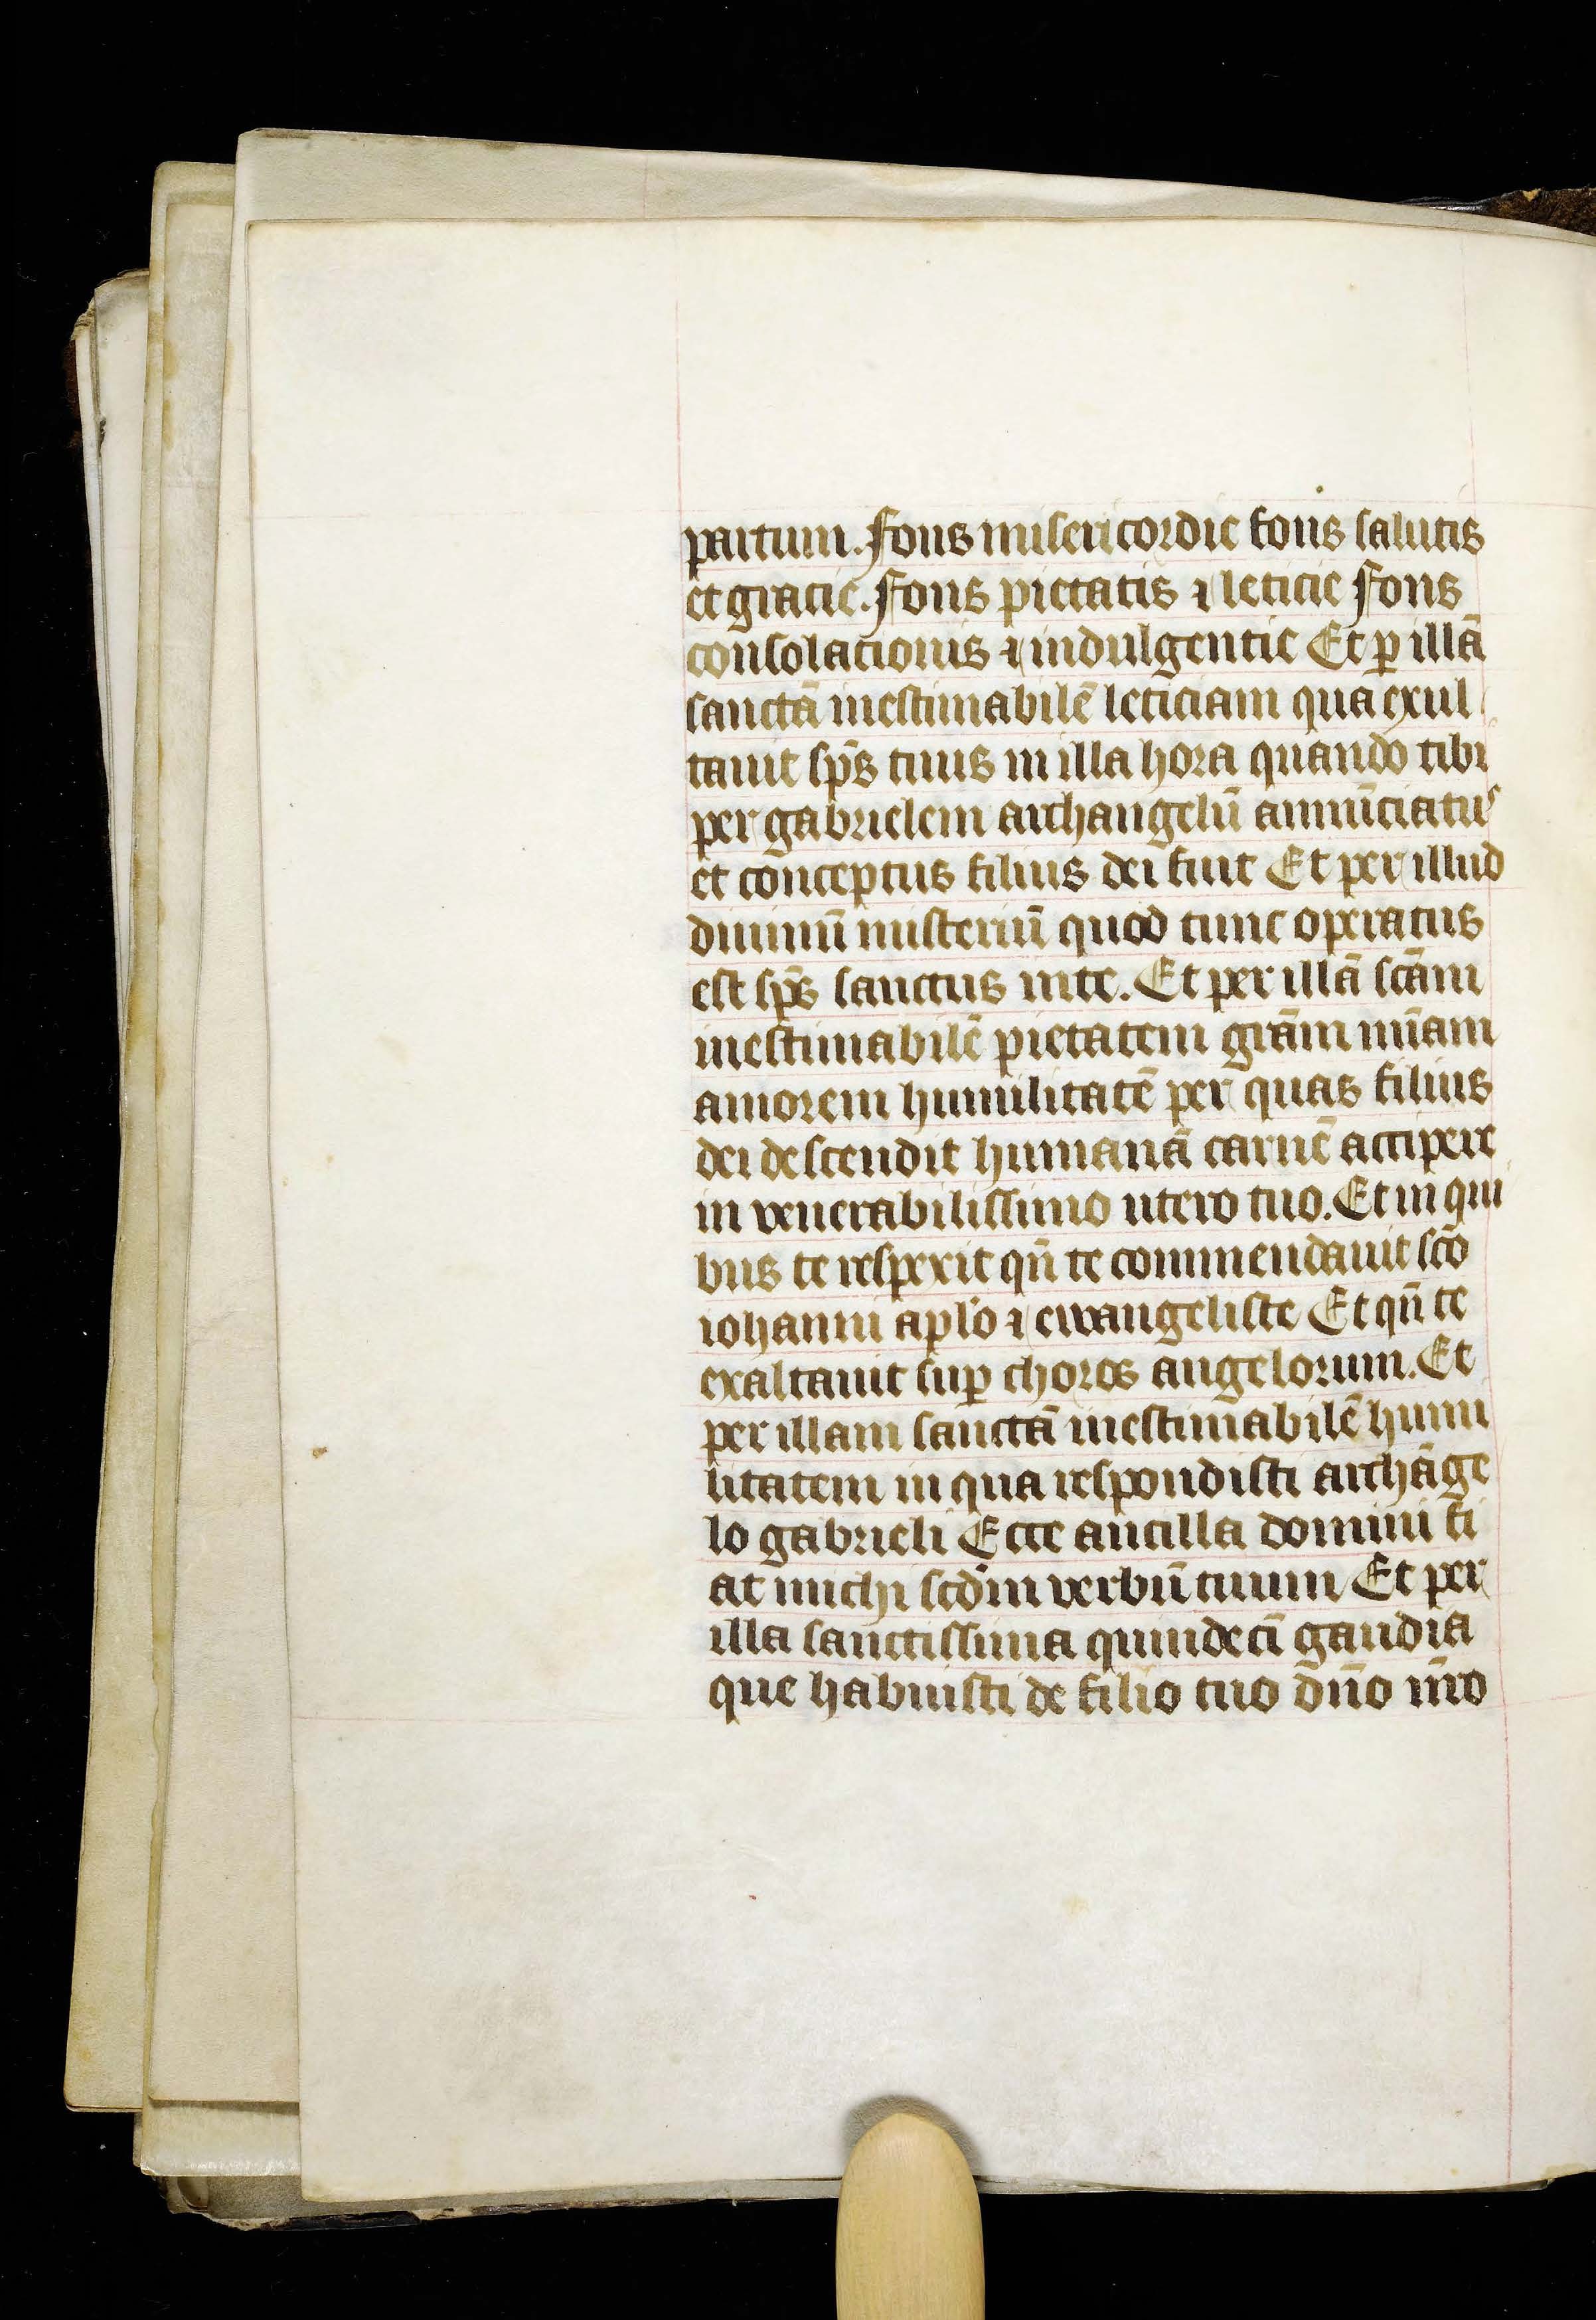 partum. fons misericordie fons salutis
et gracie. fons pietatis ⁊ leticie fons
consolationis ⁊ indulgentie Et ꝑ illā
sanctā inestimabilē leticiam qua exul
tauit sp̄s tuus in illa hora quando tibi
per gabrielem archangelū annūciatus
et conceptus filius dei fuit Et per illud
diuinū misteriū quod tunc operatus
est sp̄s sanctus in te. Et per illā scām
inestimabilē pietatem grām mīam
amorem humilitatē per quas filius
dei descendit humanā carnē accipere
in venerabilissimo utero tuo. Et in qui
bus te respexit qn̄ te commendauit scō
iohanni aplo ⁊ ewangeliste Et qn̄ te
exaltauit suꝑ choros angelorum. Et
per illam sanctā inestimabilē humi
litatem in qua respondisti archāge
lo gabrieli Ecce ancilla domini fi
at michi scdm verbū tuum Et per
illa sanctissima quindecī gaudia
que habuisti de filio tuo dn̄o nr̄o